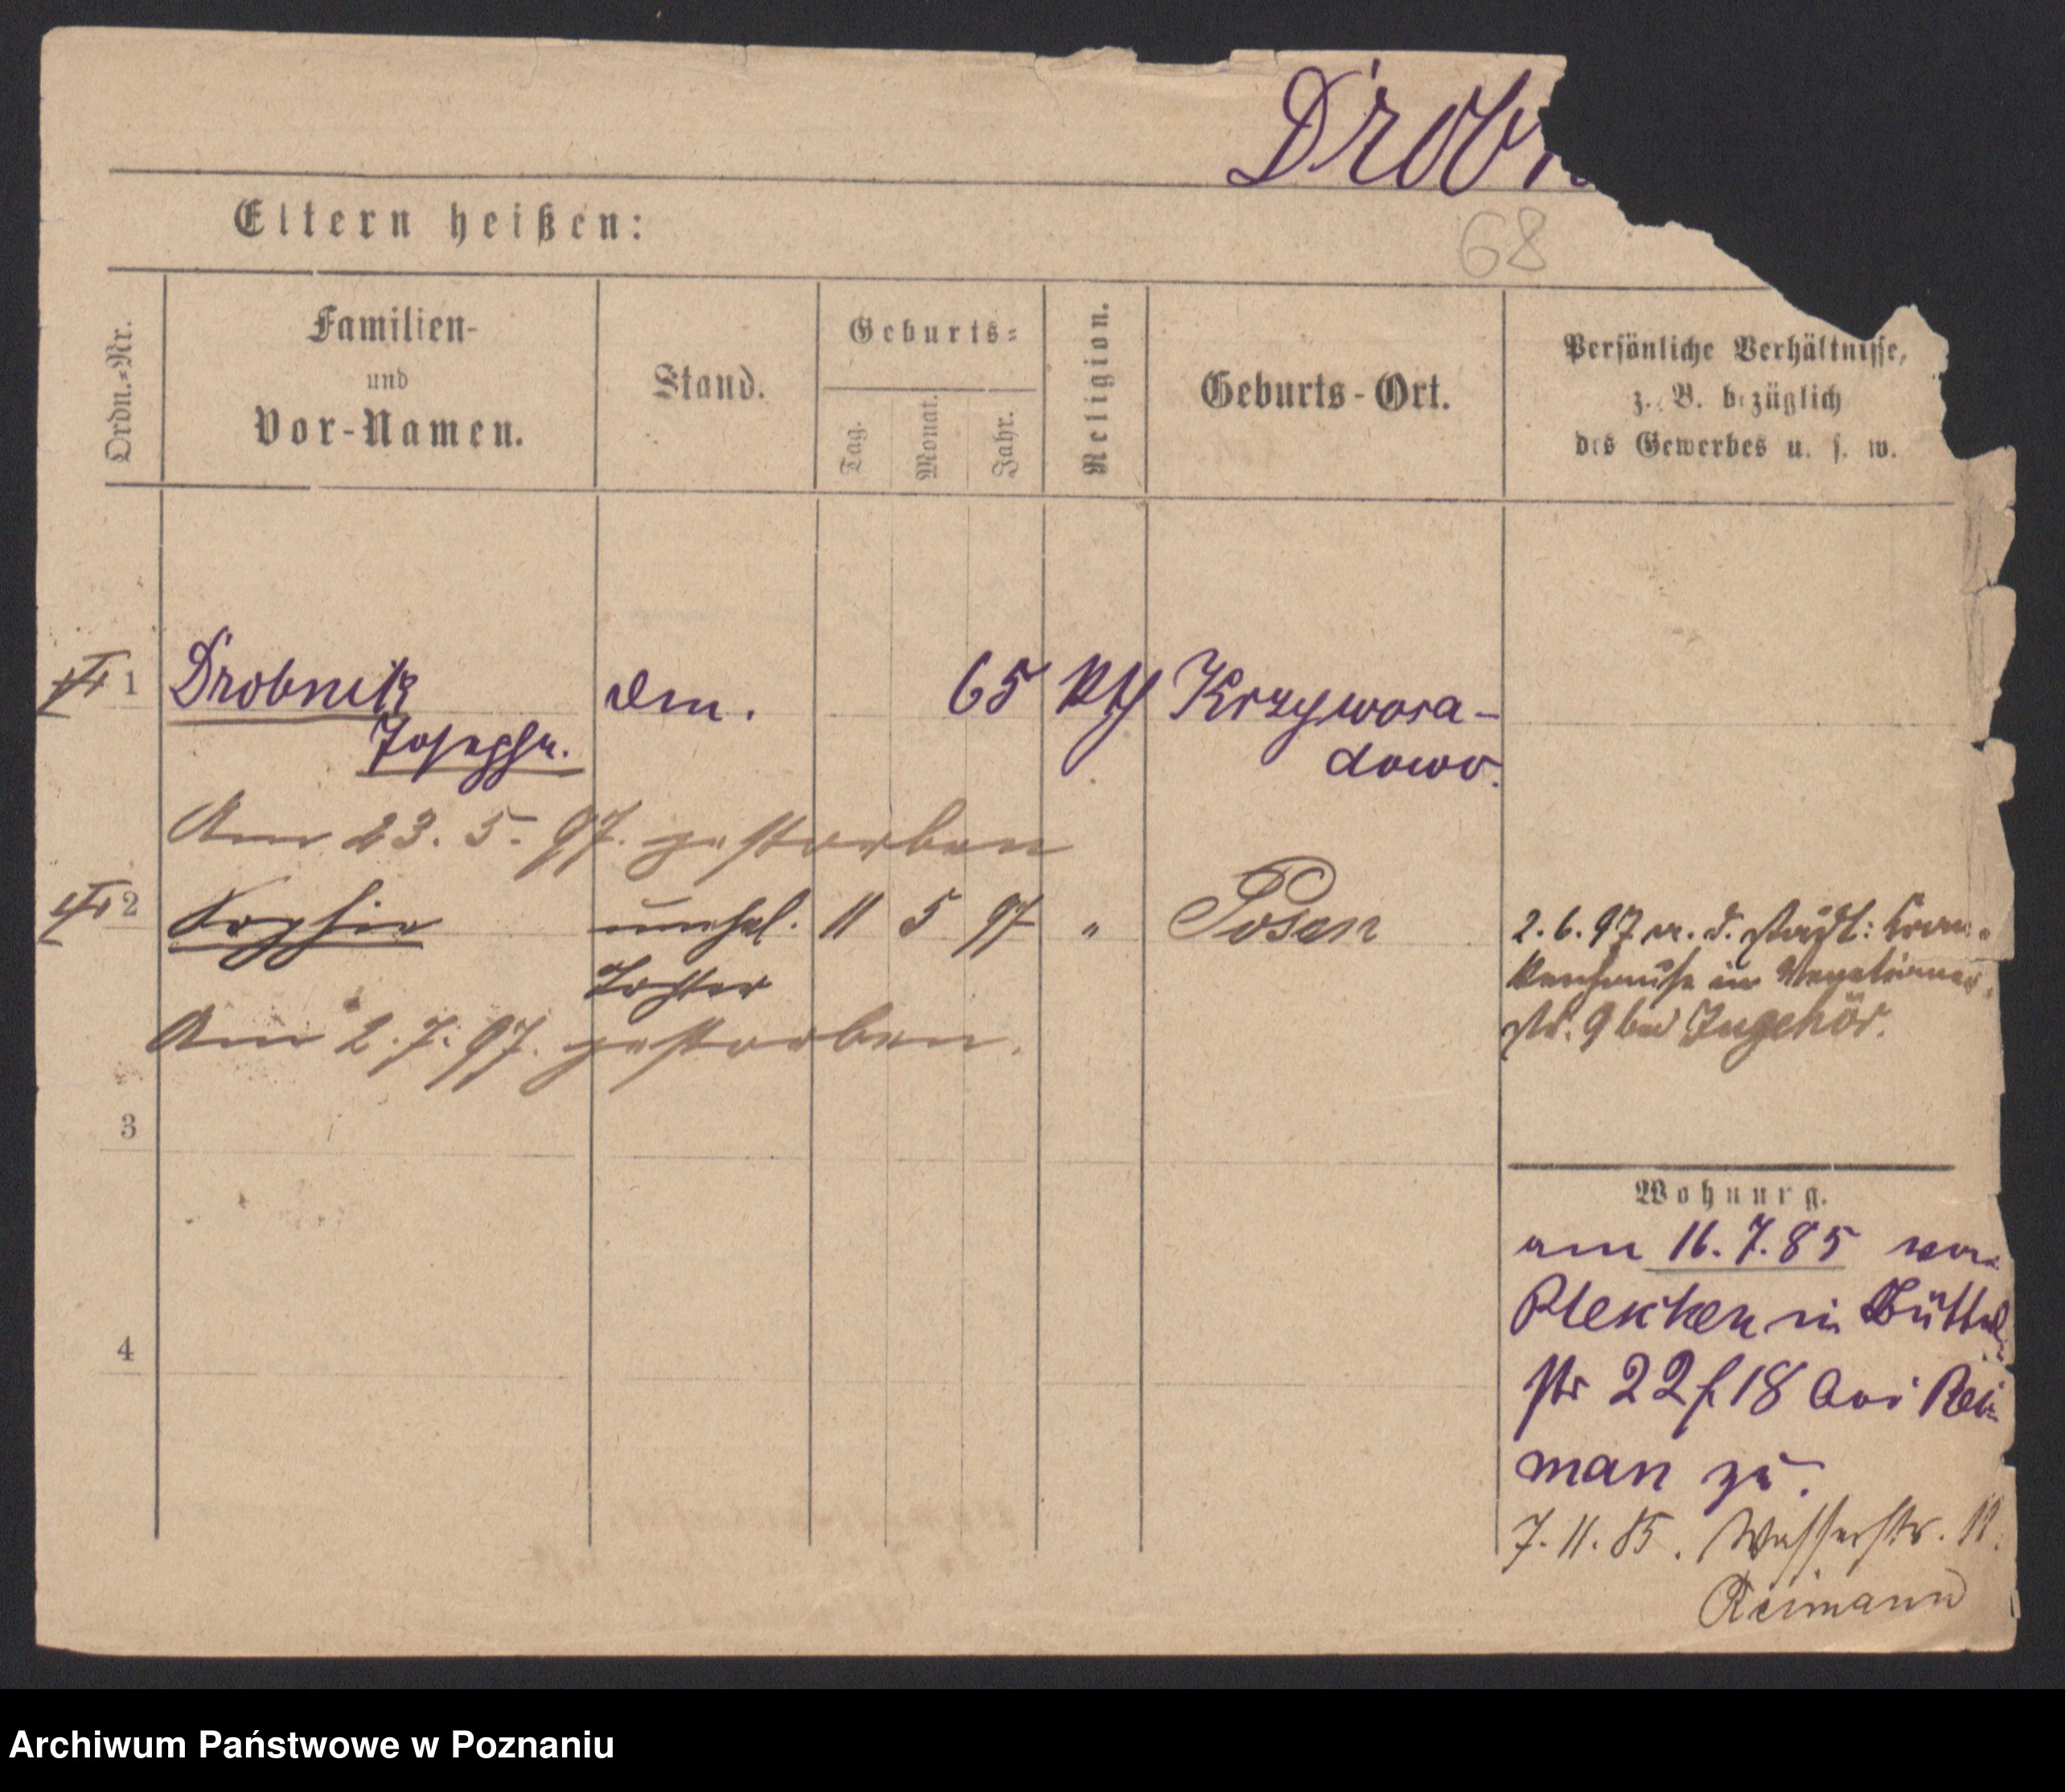 Drobn
Eltern heißen:
68
Ordn.-Nr.
Familien-
und
Vor-Namen.
Stand.
Geburts-
Tag.
Monat.
Jahr.
Religion.
Geburts-Ort.
Persönliche Verhältnisse,
z. B. bezüglich
des Gewerbes u. s. w.
1 Drobnik 65 Krzywosa-
Josepha. dowo.
Am 23. 5. 97. gestorben
2 Sophie unehel. 11 5 97 " Posen
Tochter
Am 2. 7. 97. gestorben.
2. 6. 97 a. d. städt: Kran-
kenhause in
str. 9 bei Zugehör.
3
Wohnung.
am 16. 7. 85 von
in Büttel
str 22/18 bei Rei-
man zu.
4
7. 11. 85. Wasserstr. 11.
Reimann
Archiwum Państwowe w Poznaniu